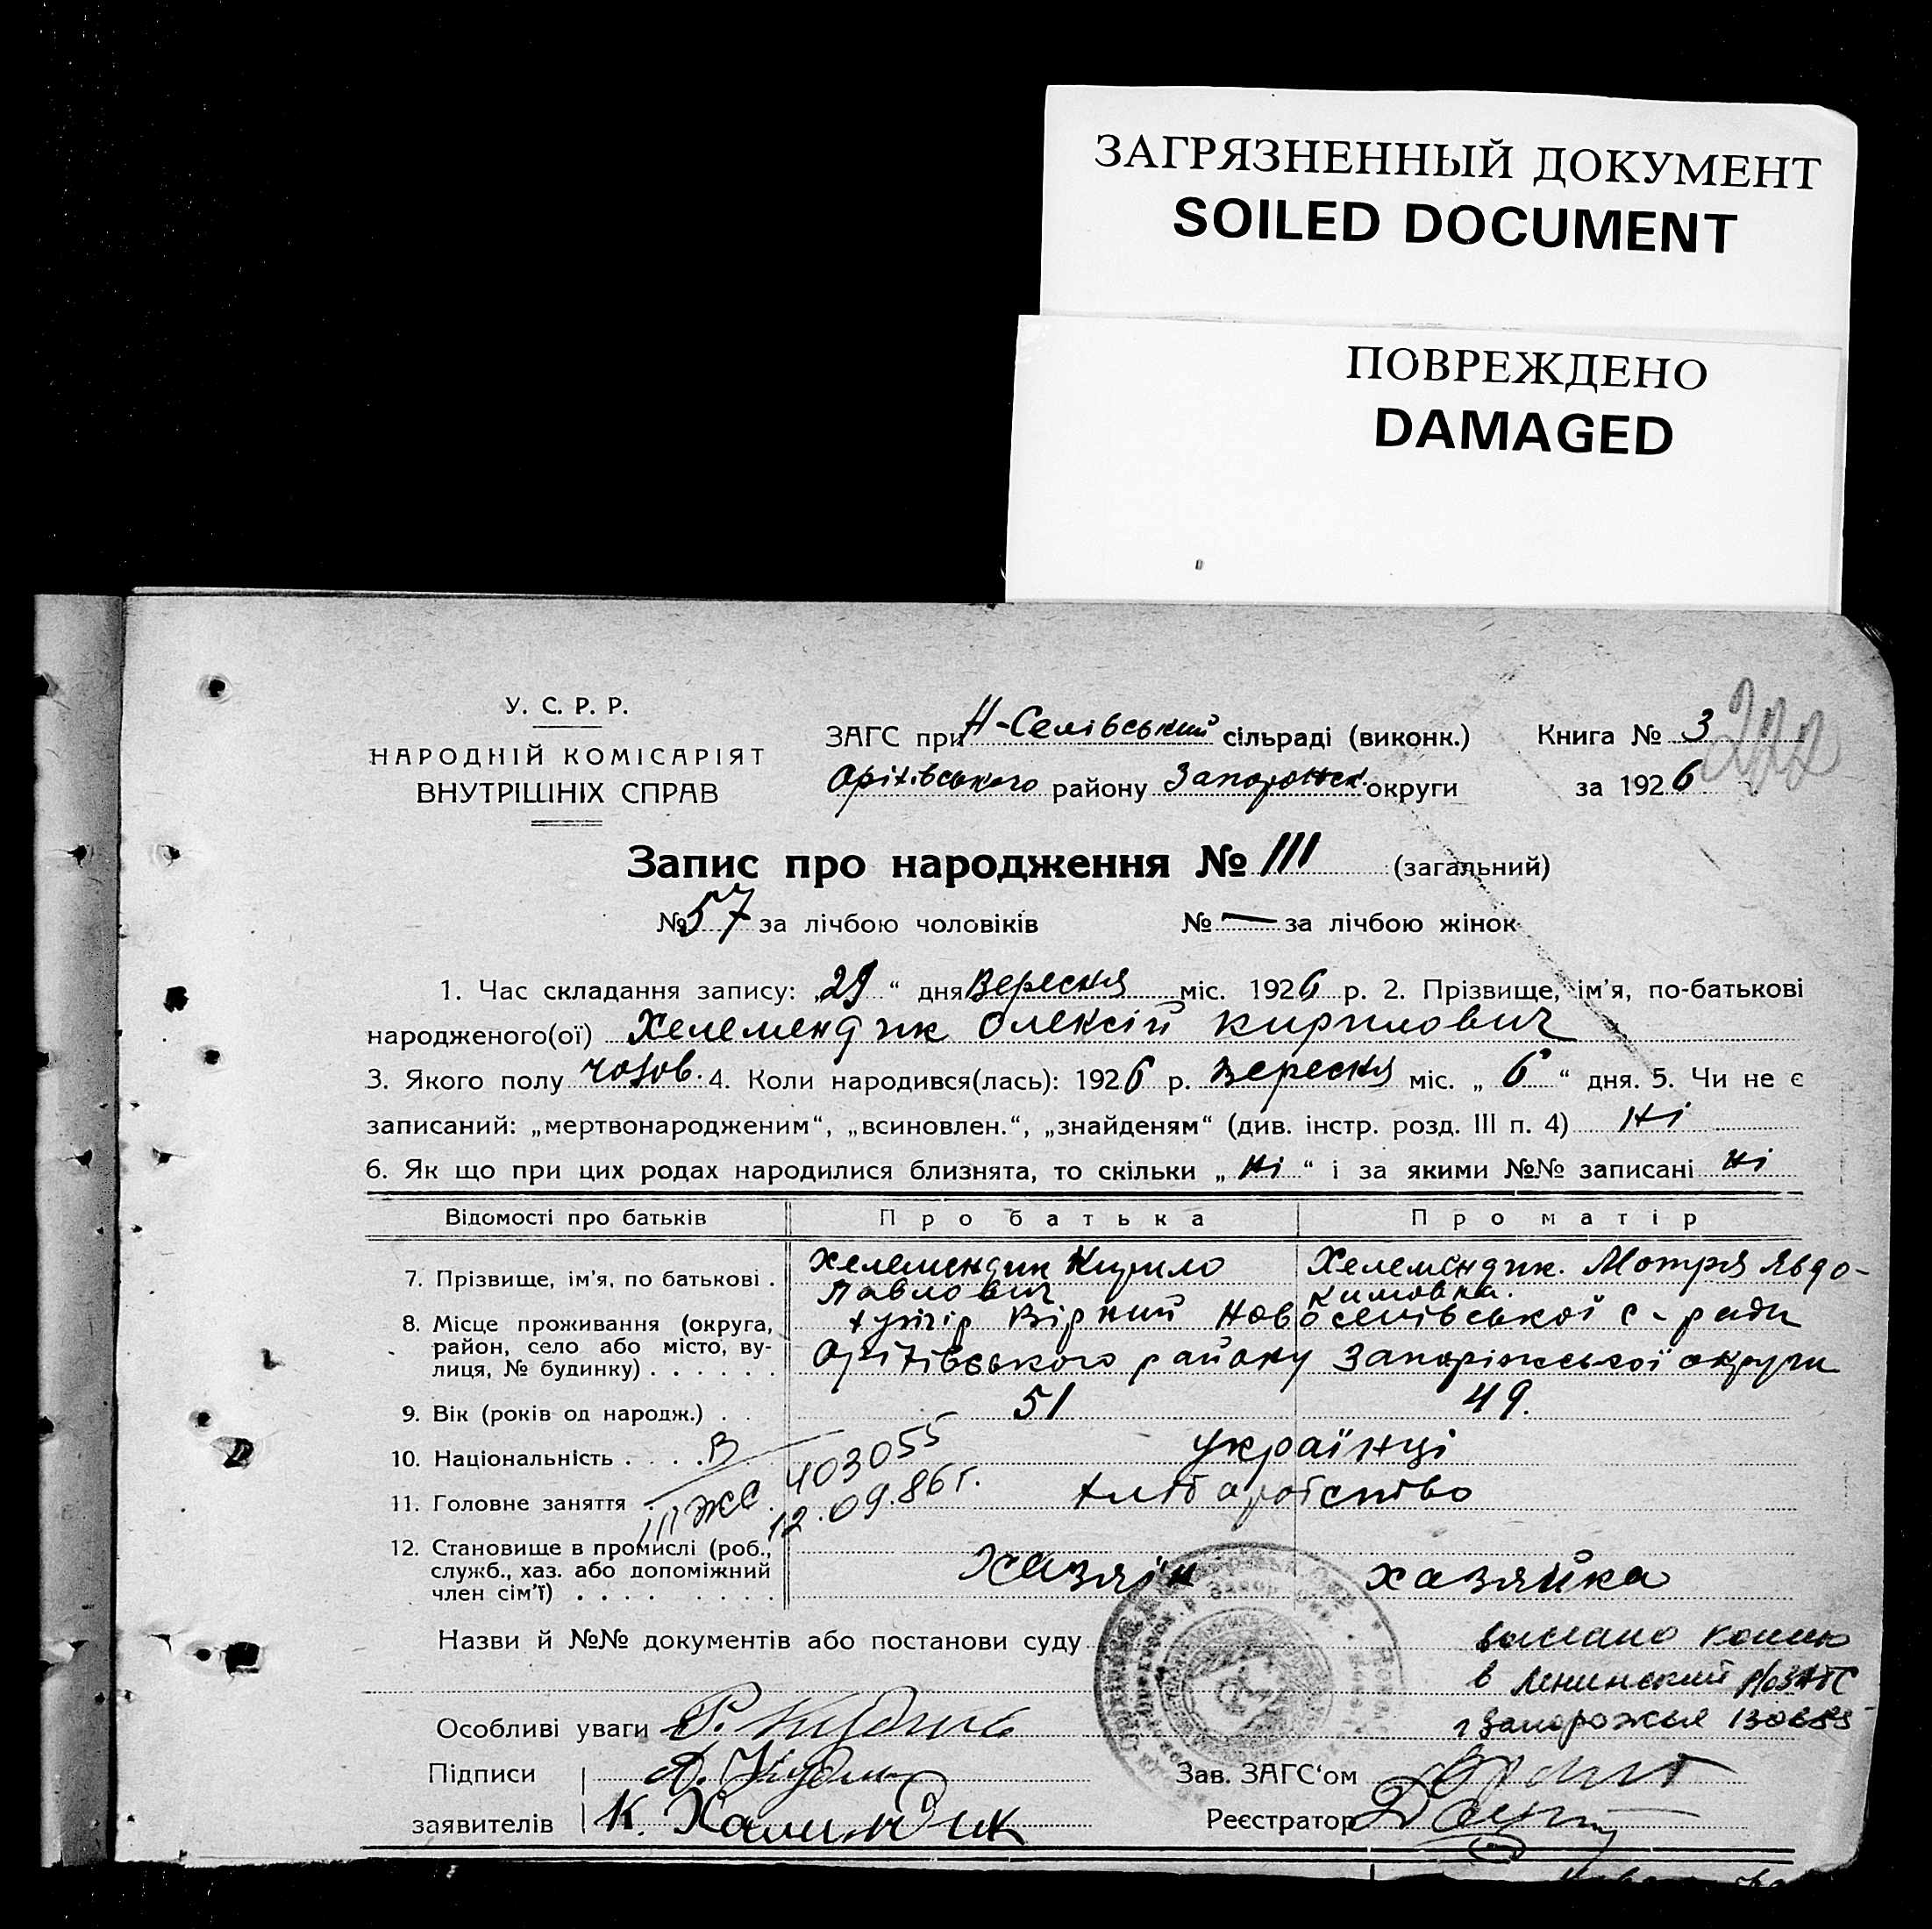 ЗАГРЯЗНЕННЫЙ ДОКУМЕНТ
SOILED DOCUMENT
ПОВРЕЖДЕНО
DAMAGED
У. С. Р. Р.
НАРОДНІЙ КОМІСАРІЯТ
ВНУТРІШНІХ СПРАВ
ЗАГС при Н-Селівський сільраді (виконк.)
Оріхівського району Запорожск. округи
Книга № 3
за 1926
Запис про народження № 111 (загальний)
№ 57 за лічбою чоловіків № — за лічбою жінок
1. Час складання запису: „29“ дня Вересня міс. 1926 р. 2. Прізвище, ім'я, по-батькові
народженого(ої) Хелемендик Олексій Кирилович
3. Якого полу чолов. 4. Коли народився(лась): 1926 р. Вересня міс. „6“ дня. 5. Чи не є
записаний: „мертвонародженим“, „всиновлен.“, „знайденям“ (див. інстр. розд. III п. 4) Ні
6. Як що при цих родах народилися близнята, то скільки „Ні“ і за якими №№ записані Ні
Відомості про батьків Про батька Про матір
7. Прізвище, ім'я, по батькові . Хелемендик Кирило Хелемендик. Мотря Явдо-
Павлович кимовна.
8. Місце проживання (округа, хутір Вірний Новоселівської с-ради
район, село або місто, ву-
лиця, № будинку) . . . . . . Оріхівського району Запоріжської округи
9. Вік (років од народж.) . . 51 49.
10. Національність . . . . українці
В 403055
11. Головне заняття . хліборобство
III ЖС 12.09.86 г.
12. Становище в промислі (роб.,
служб., хаз. або допоміжний хазяїн хазяйка
член сім'ї) . . . . . . . .
Назви й №№ документів або постанови суду
выслано копию
в Ленинский р/ЗАГС
г Запорожья
Особливі уваги
Підписи
заявителів К. Халиндик
Зав. ЗАГС'ом
Реєстратор